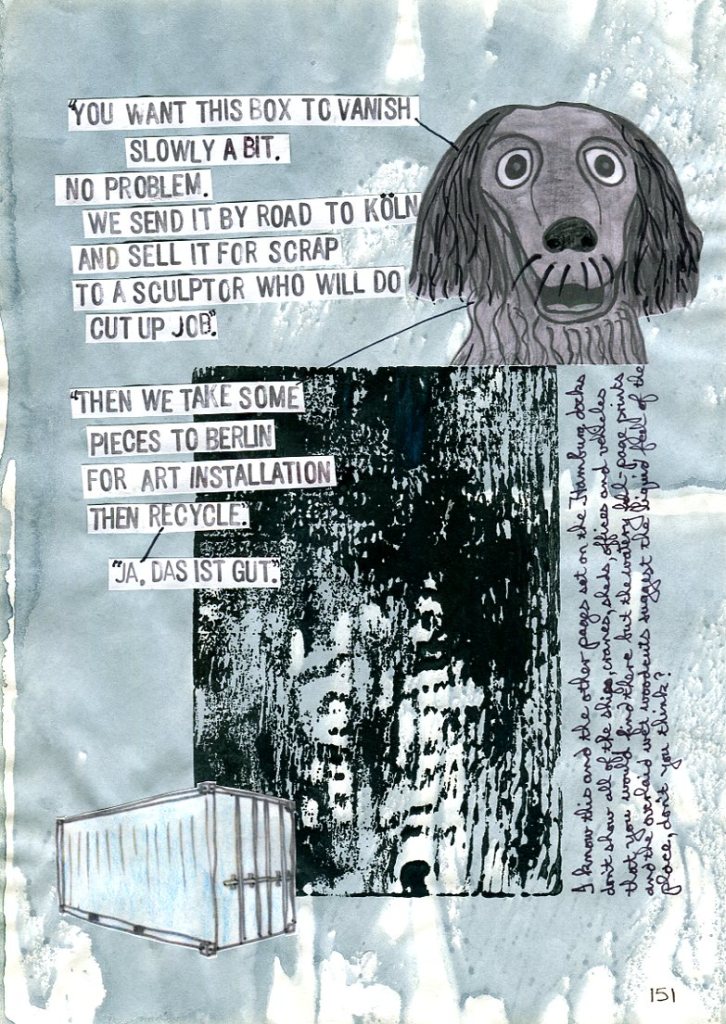 "YOU WANT THIS BOX TO VANISH
SLOWLY A BIT.
NO PROBLEM.
WE SEND IT BY ROAD TO KÖLN
AND SELL IT FOR SCRAP
TO A SCULPTOR WHO WILL DO
CUT UP JOB".
"THEN WE TAKE SOME
PIECES TO BERLIN
FOR ART INSTALLATION
THEN RECYCLE."
"JA, DAS IST GUT."
I know this and the other pages set on the Hamburg docks
don't show all of the ships, cranes, sheds, offices and vehicles
that you would find there but the watery full-page prints
and the overlaid wet woodcuts suggest the liquid feel of the
place, don't you think?
151